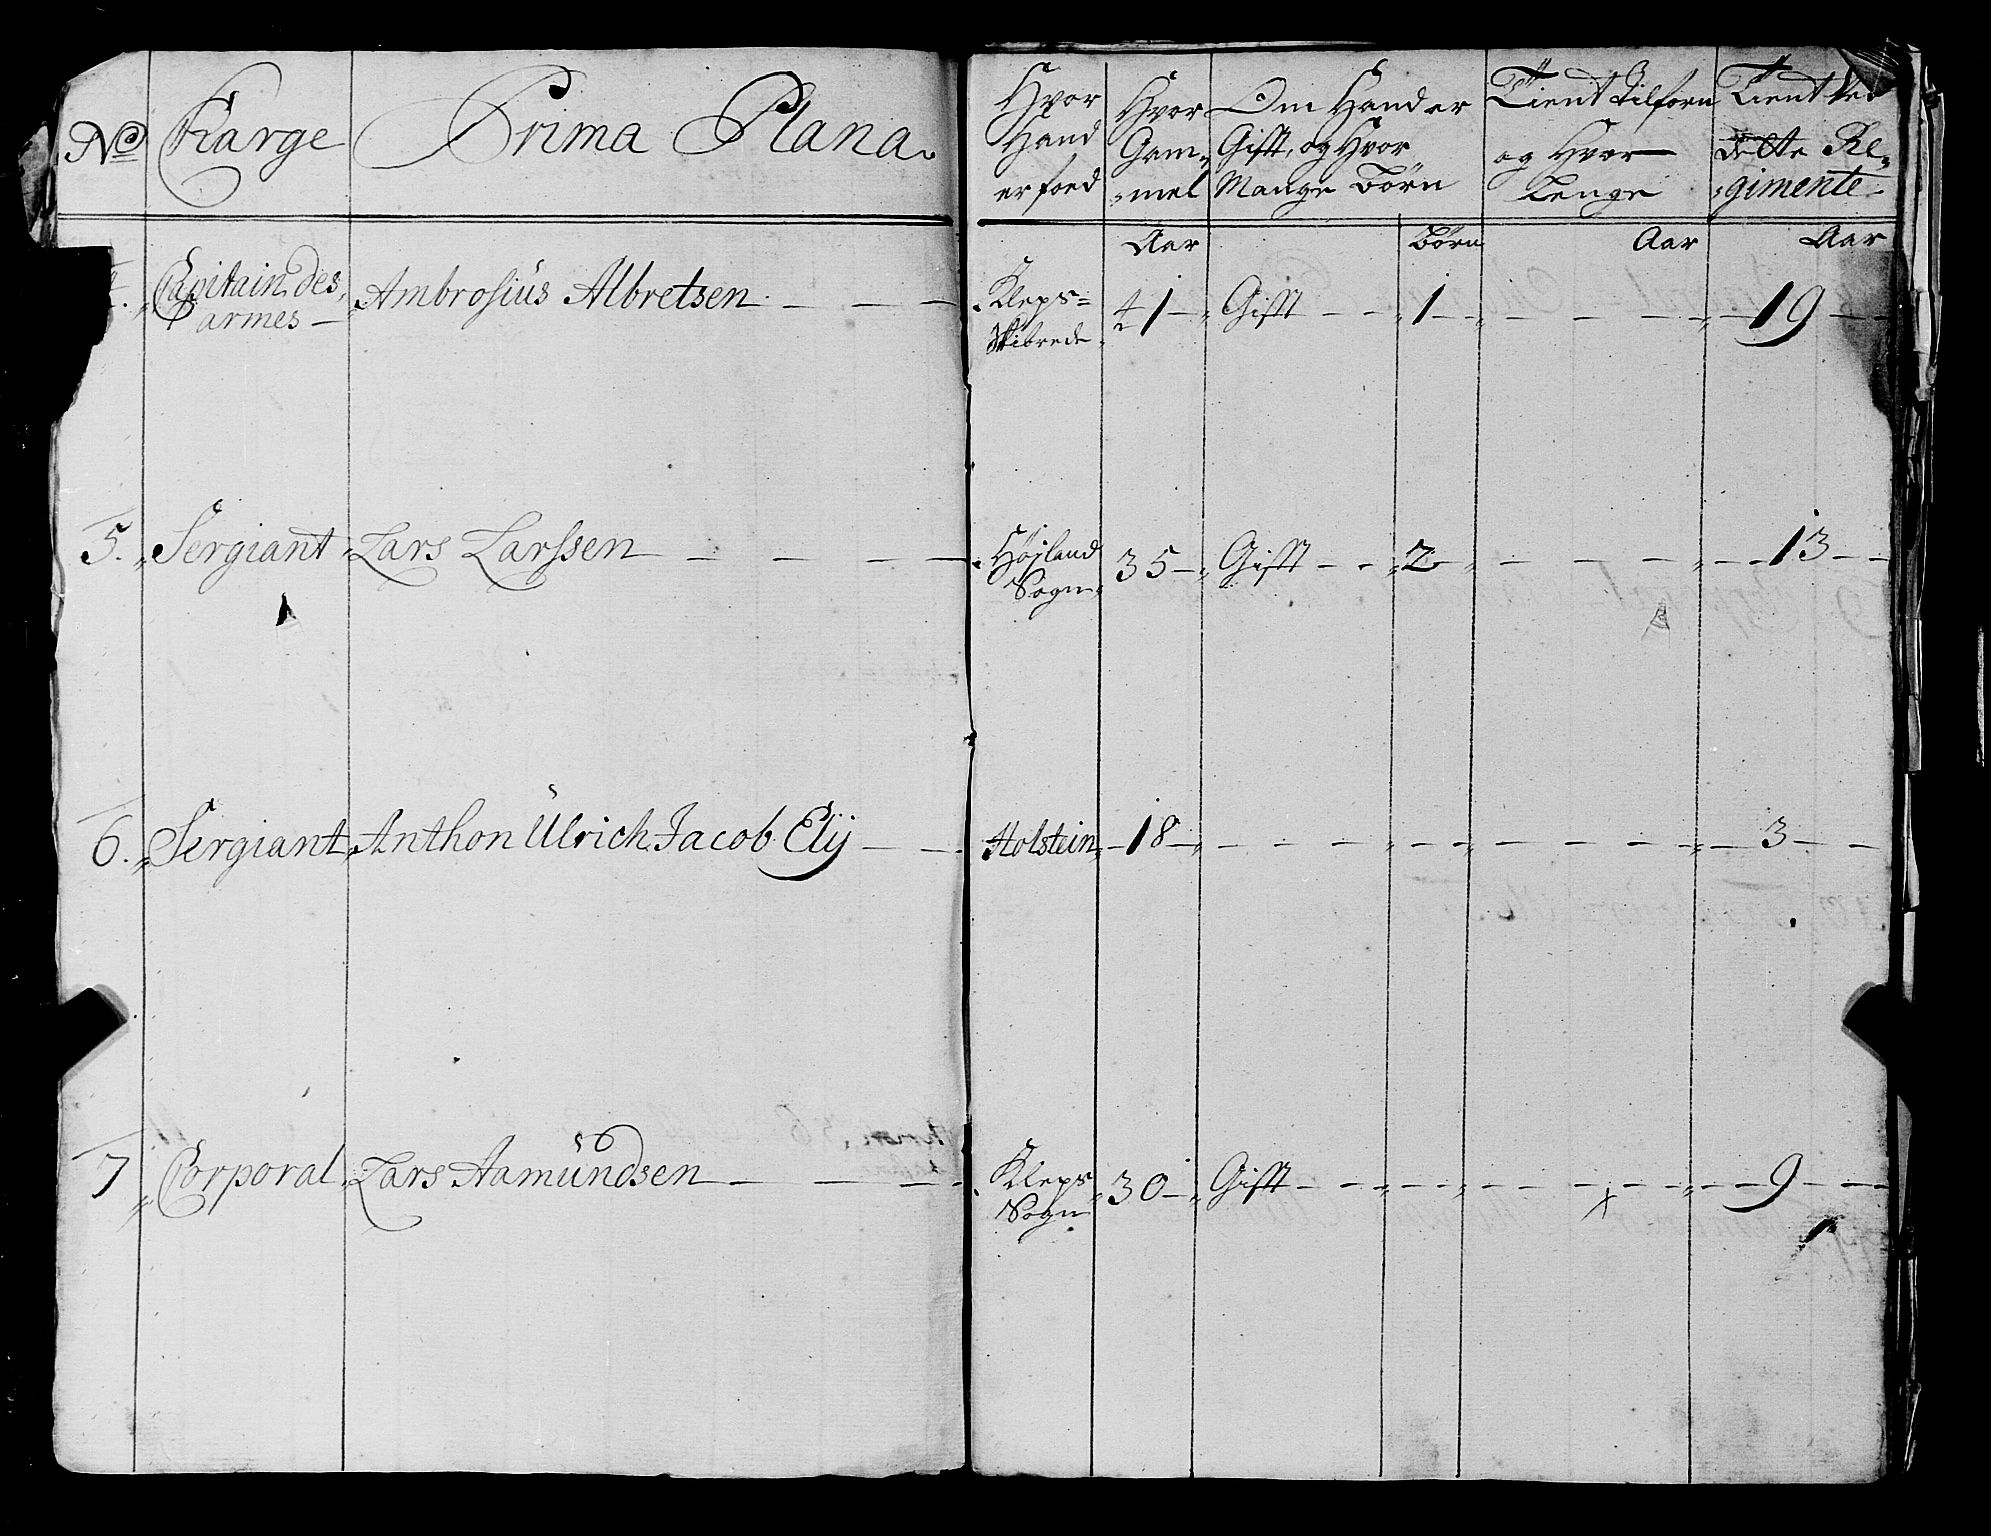 No Karge Prima Plana.
Hvor Hand er foed
Hvor Gam-mel
Om Hand er Gift, og Hvor Mange Børn
Tient tilforn og Hvor Lenge
Tient ved dette Re-gimente
Aar Børn Aar Aar
4. Capitain des armes Ambrosius Albretsen Kleps-Skibrede 41 Gift 1 19
5. Sergiant Lars Larssen Höjland Sogn 35 Gift 2 13
6. Sergiant Anthon Ulrich Jacob Elÿ Holstein 18 3
7 Corporal Lars Aamündsen Kleps Sogn 30 Gift 9